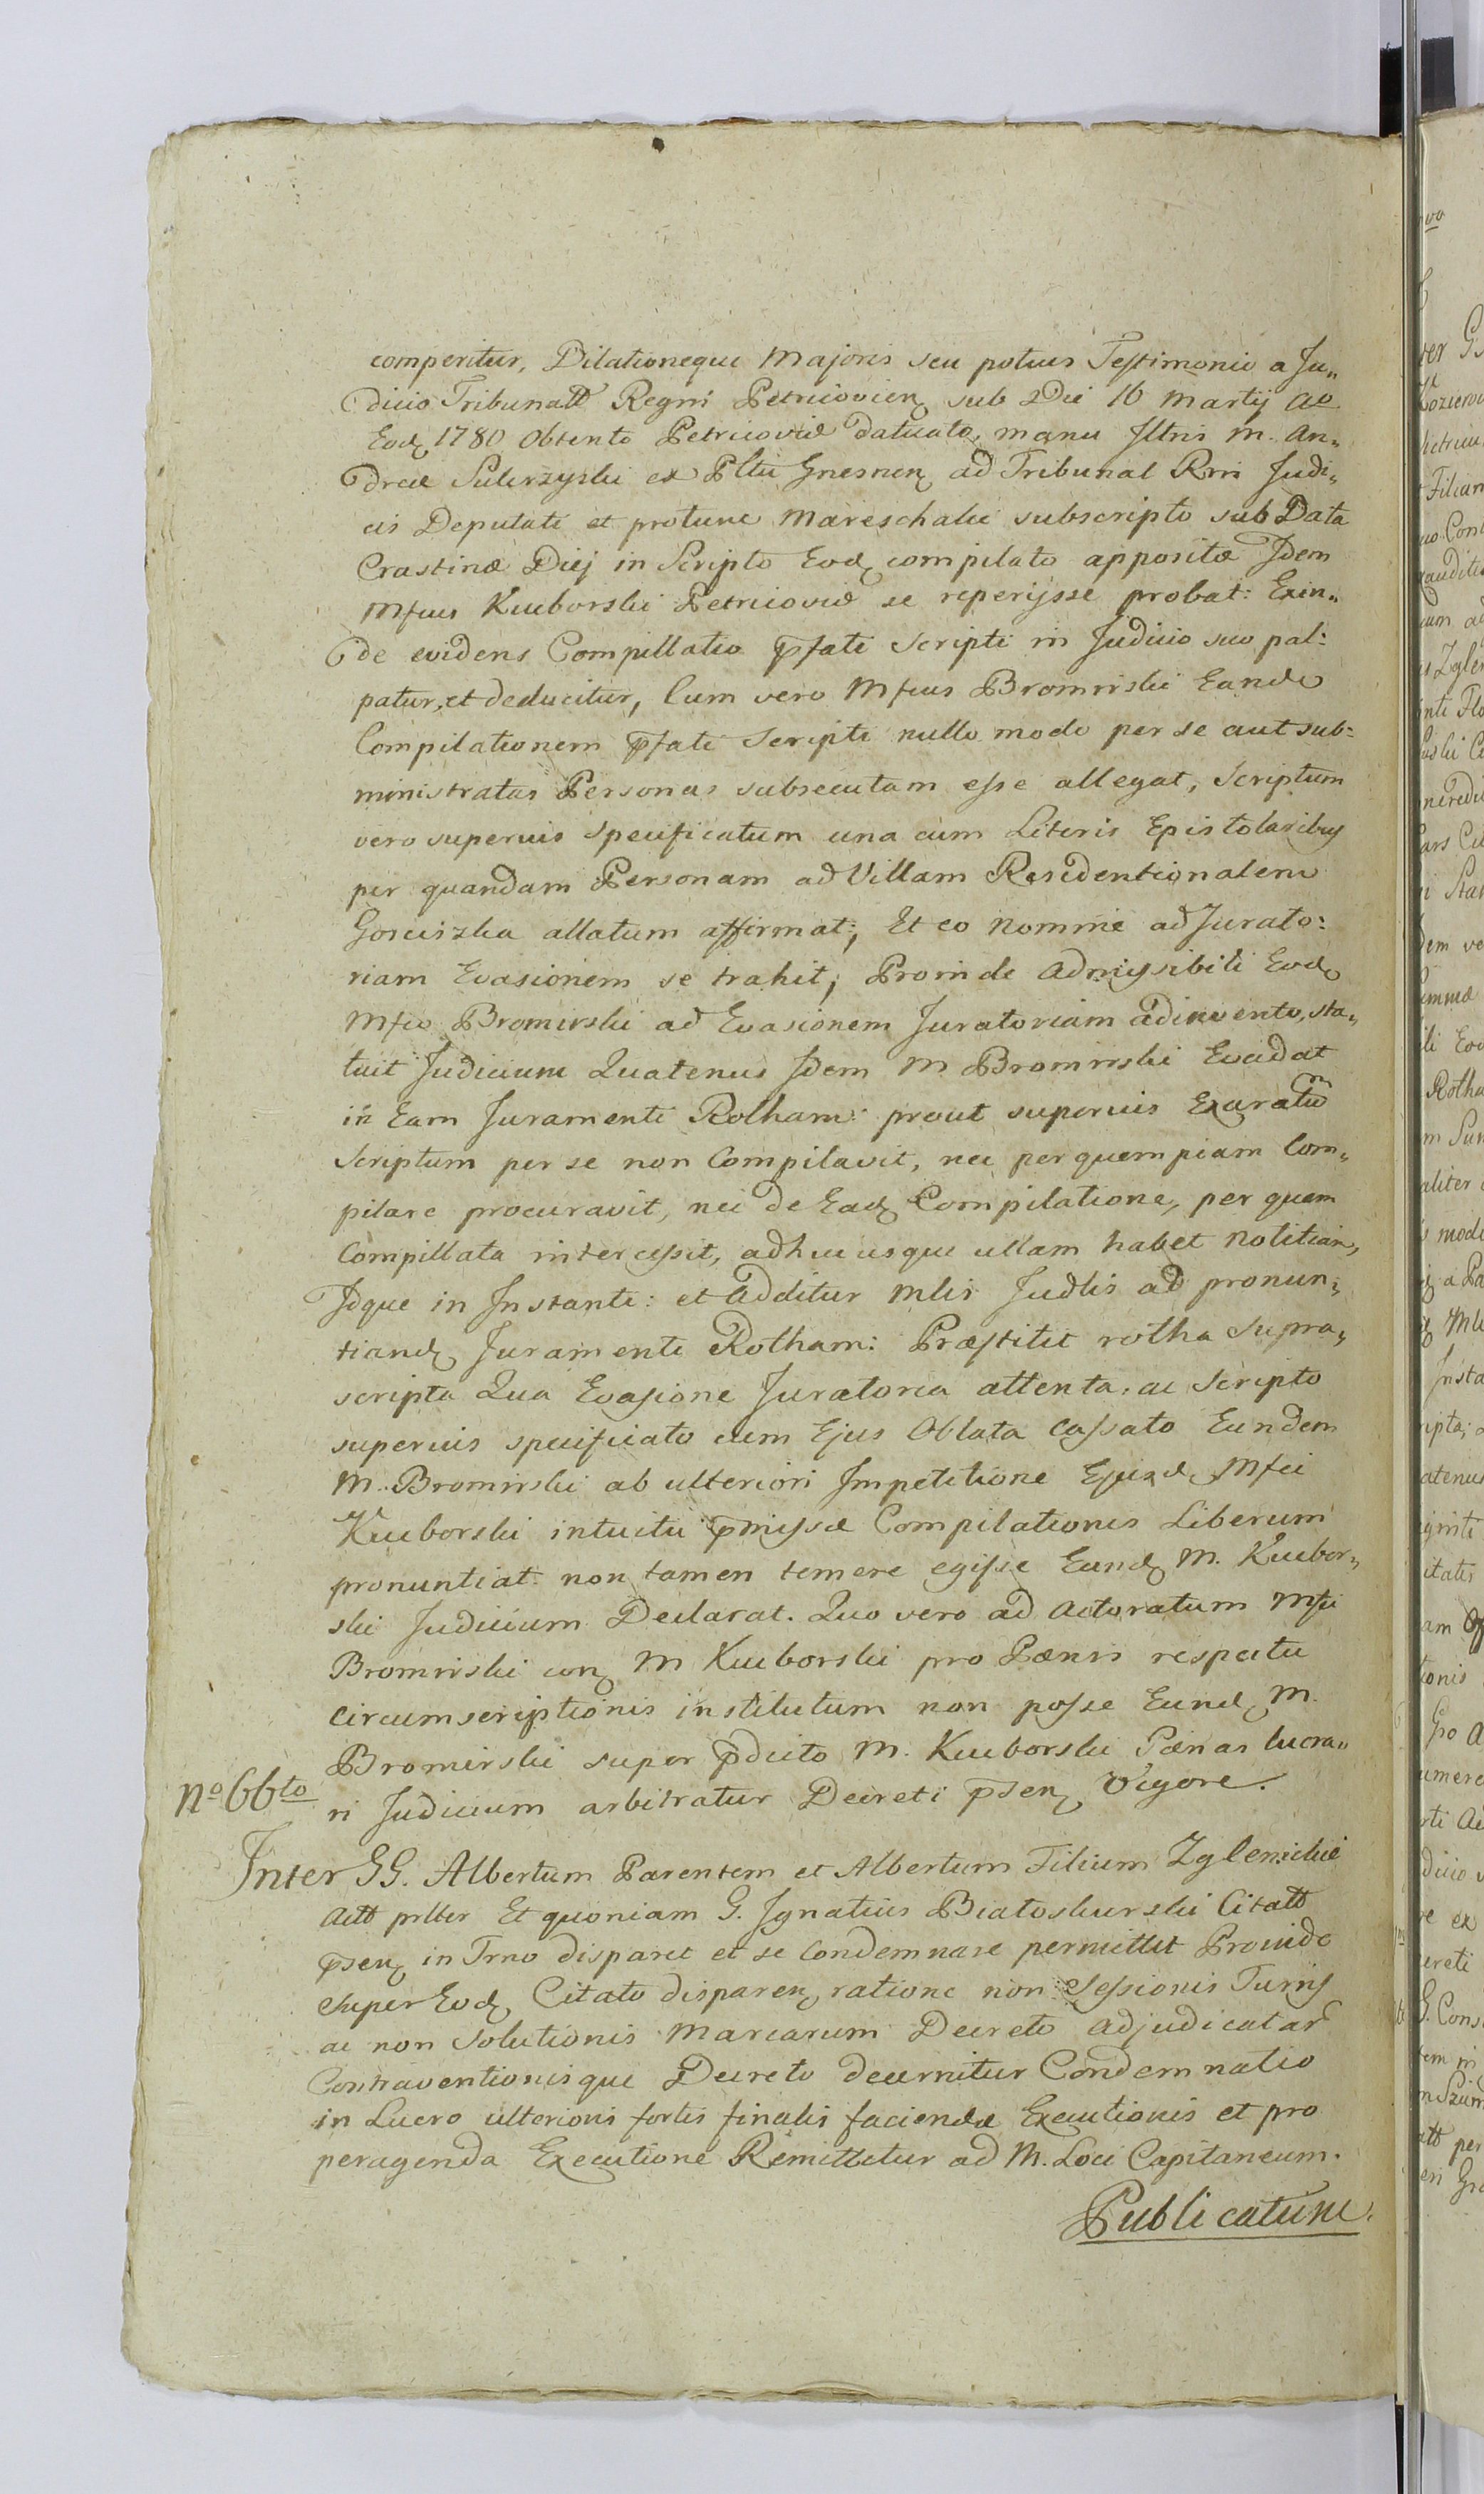 comperitur, Dilationeque Majoris seu potius Testimonio a Ju„
dicio Tribunall Regni Petricovien sub Die 16 Martij ao
Eod 1780 obtento Petricoviæ datuato, manu Illris M. An„
dreæ Sulerzyski ex Pltu Gnesnen ad Tribunal Rni Judi„
cis Deputati et protunc Mareschalci subscripto sub Data
Crastinæ Diej in Scripto Eod compilato appositæ Idem
Mfcus Kucborski Petricoviæ se reperijsse probat: Exin„
de evidens Compillatio pfati Scripti in Judicio suo pal:
patur, et deducitur, Cum vero Mfcus Bromirski Eand
Compilationem pfati Scripti nullo modo per se aut sub:
ministratas Personas subsecutam esse allegat, Scriptum
vero superius specificatum una cum Literis Epistolaribus
per quandam Personam ad Villam Residentionalem
Gosciszka allatum affirmat; Et eo nomine ad Jurato:
riam Evasionem se trahit; Proinde admissibili Eod
Mfco Bromirski ad Evasionem Juratoriam adinvento, sta„
tuit Judicium Quatenus Idem M. Bromirski Evadat
in Eam Juramenti Rotham: prout superius Exaratu m
Scriptum per se non Compilavit, nec per quempiam Com„
pilare procuravit, nec de Ead Compilatione, per quem
Compillata intercessit, adhucusque ullam habet notitiam,
Idque in Instanti: et additur Mlis Judlis ad pronun„
tiand Juramenti Rotham: Præstitit rotha supra„
scripta Qua Evasione Juratoria attenta, ac Scripto
superius specificato cum Ejus Oblata Cassato Eundem
M. Bromirski ab ulteriori Impetitione Ejusd Mfci
Kucborski intuitu pmissæ Compilationis Liberum
pronuntiat: non tamen temere egisse Eund M. Kucbor„
ski Judicium Declarat. Quo vero ad Actoratum Mfci
Bromirski con M Kucborski pro Pænis respectu
circumscriptionis institutum non posse Eund M.
Bromirski super pdicto M. Kucborski Pænas lucra„
ri Judicium arbitratur Decreti psen Vigore.
No 66to
Inter GG. Albertum Parentem et Albertum Filium Zglenickie
Actt prltter Et quoniam G. Ignatius Białoskurski Citatt
psen in Trno disparet et se Condemnare permittit Proinde
super Eod Citato disparen ratione non Sessionis Turris
ac non Solutionis Marcarum Decreto adjudicatar
Contraventionisque Decreto decernitur Condemnatio
in Lucro ulterioris fortis finalis faciendæ Executionis et pro
peragenda Executione Remittitur ad M. Loci Capitaneum.
Publicatum.